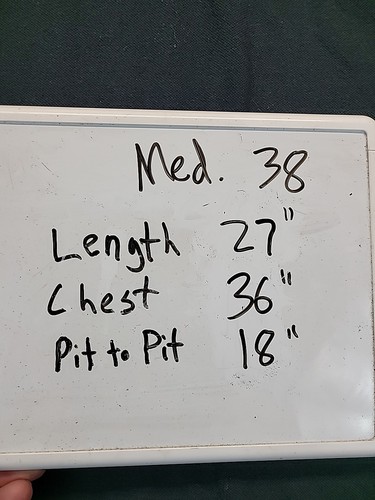 Med. 38
Length 27"
Chest 36"
Pit to Pit 18"